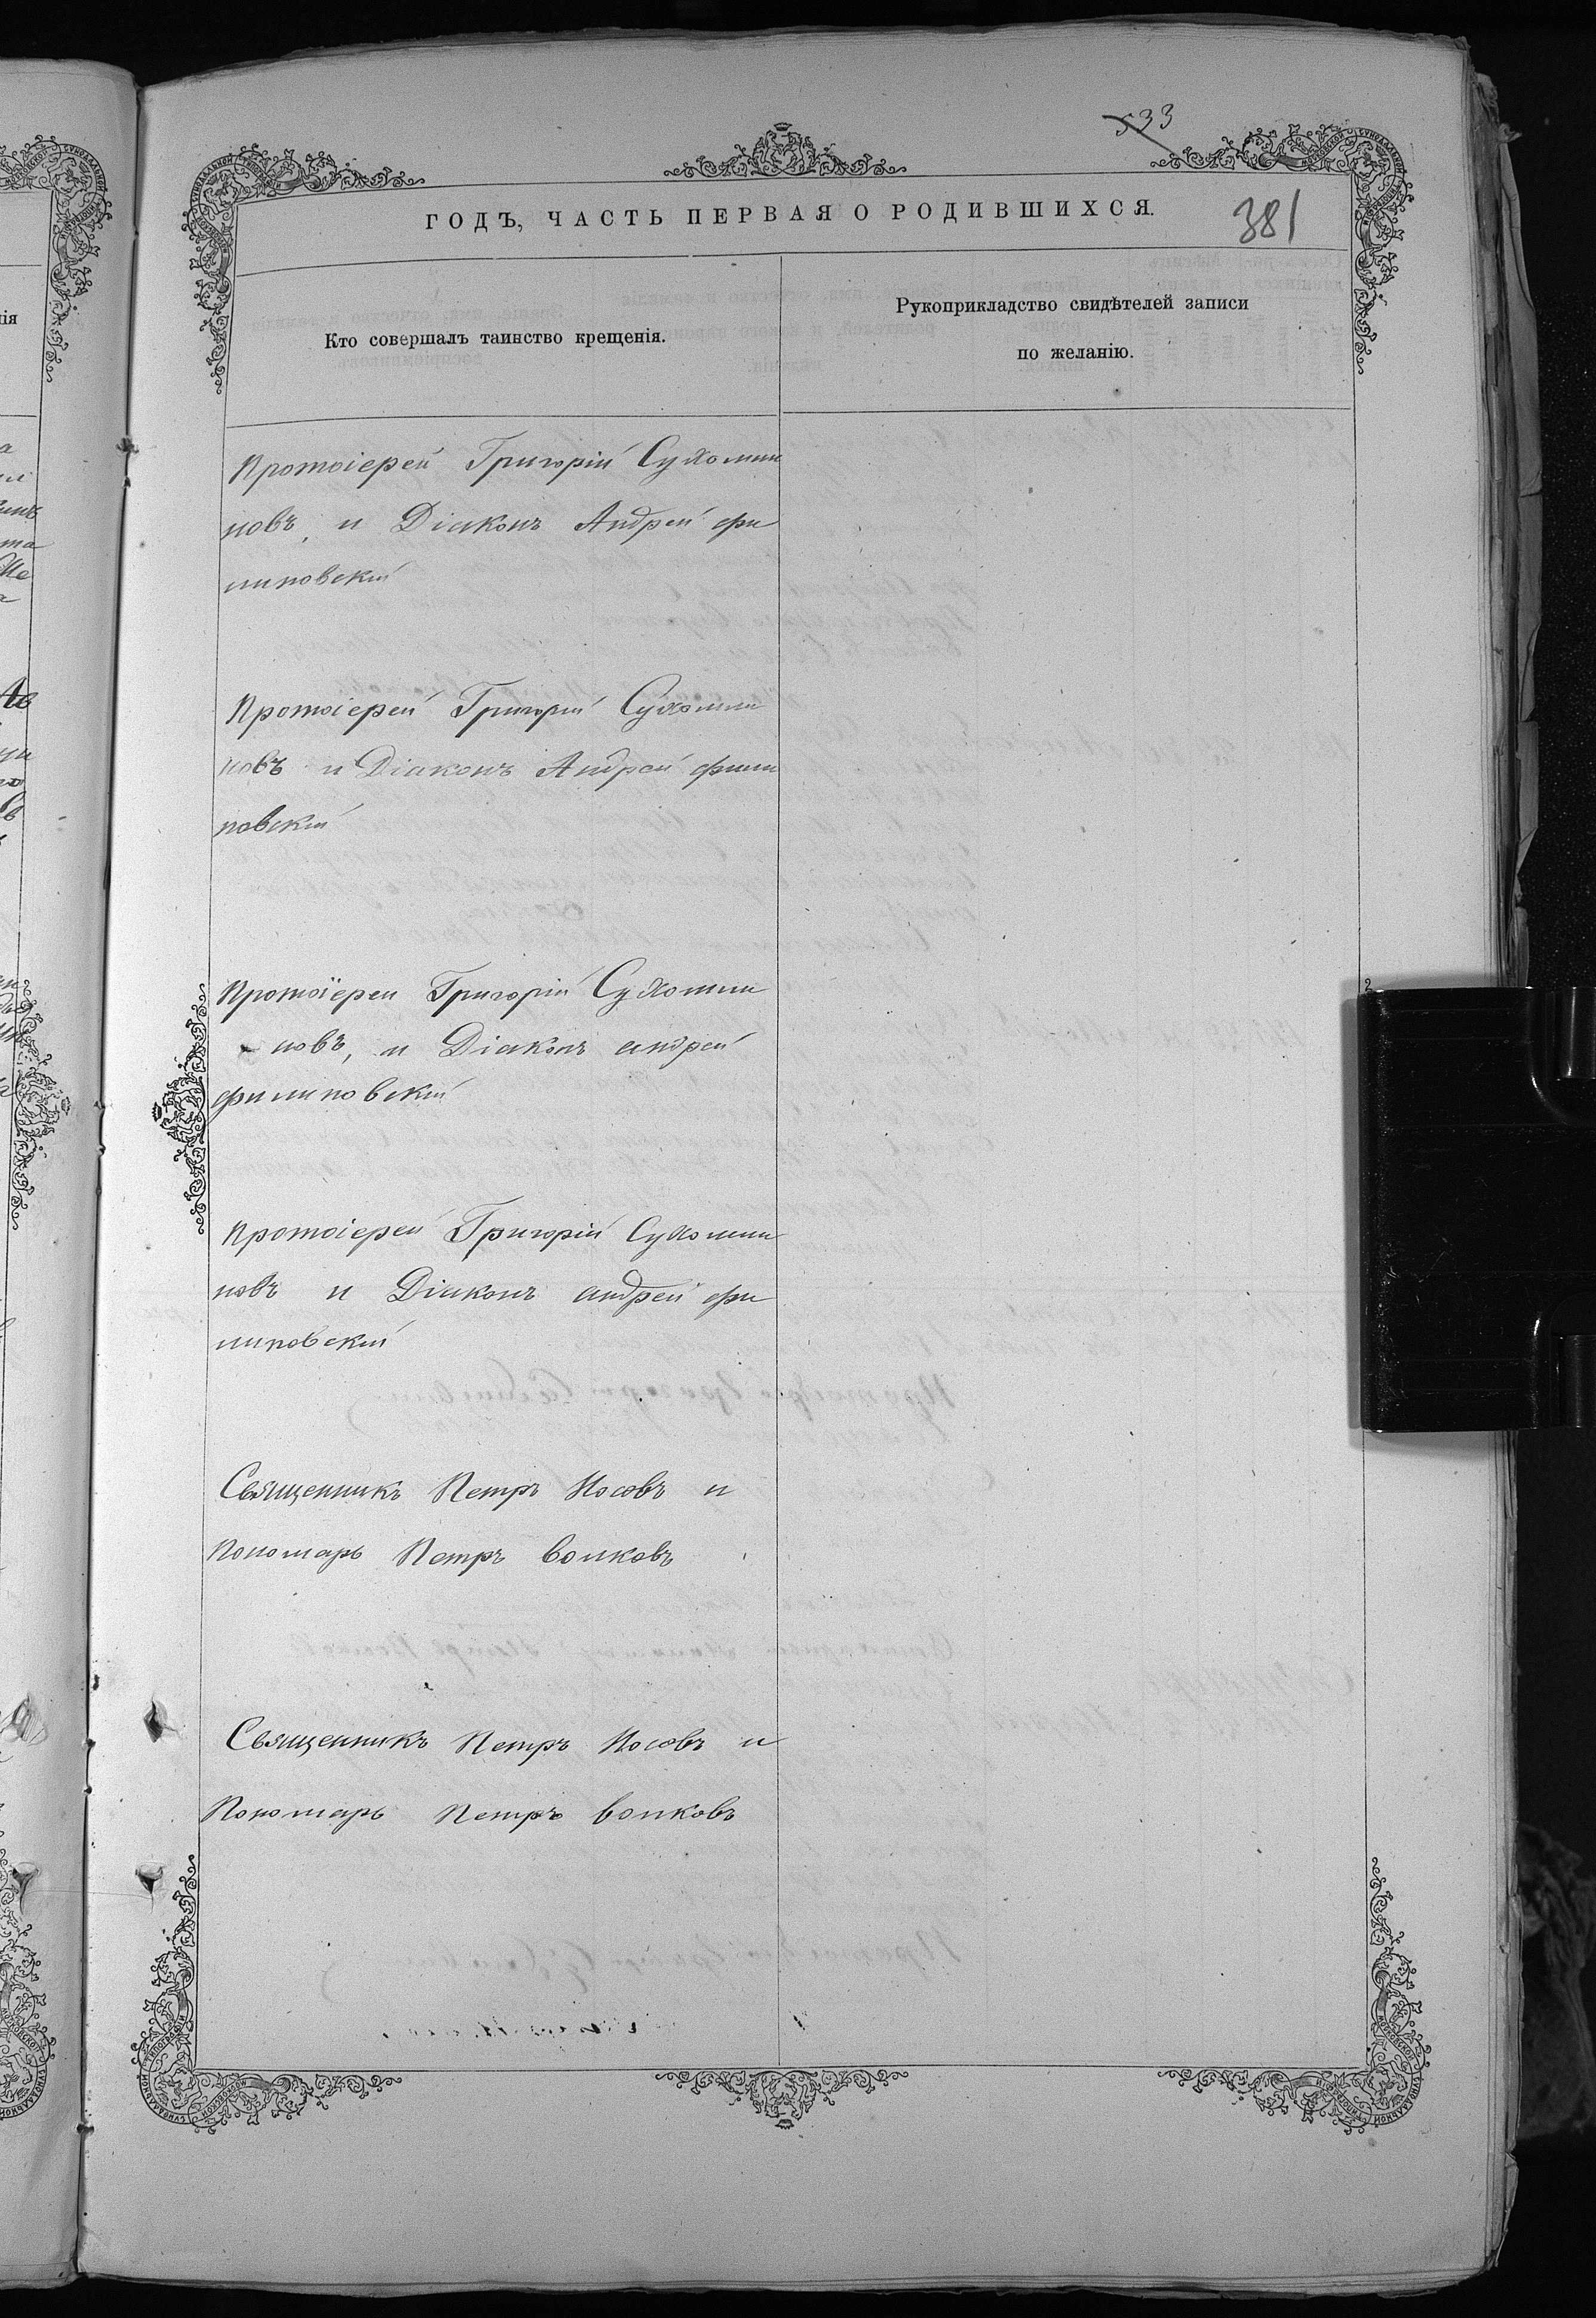 533
ГОДЪ, ЧАСТЬ ПЕРВАЯ О РОДИВШИХСЯ.
381
Кто совершалъ таинство крещенія.
Рукоприкладство свидѣтелей записи
по желанію.
Протоіерей Григорій Сухомли
новъ, и Діаконъ Андрей фи
липовскій
Протоіерей Григорій Сухомли
новъ и Діаконъ Андрей фили
повскій
Протоіереи Григорій Сухомли
новъ, и Діаконъ андрей
филиповскій
Протоіерей Григорій Сухомли
новъ и Діаконъ андрей фи
липовскій
Священникъ Петръ Носовъ и
Пономарь Петръ волковъ
Священникъ Петръ Носовъ и
Пономарь Петръ волковъ